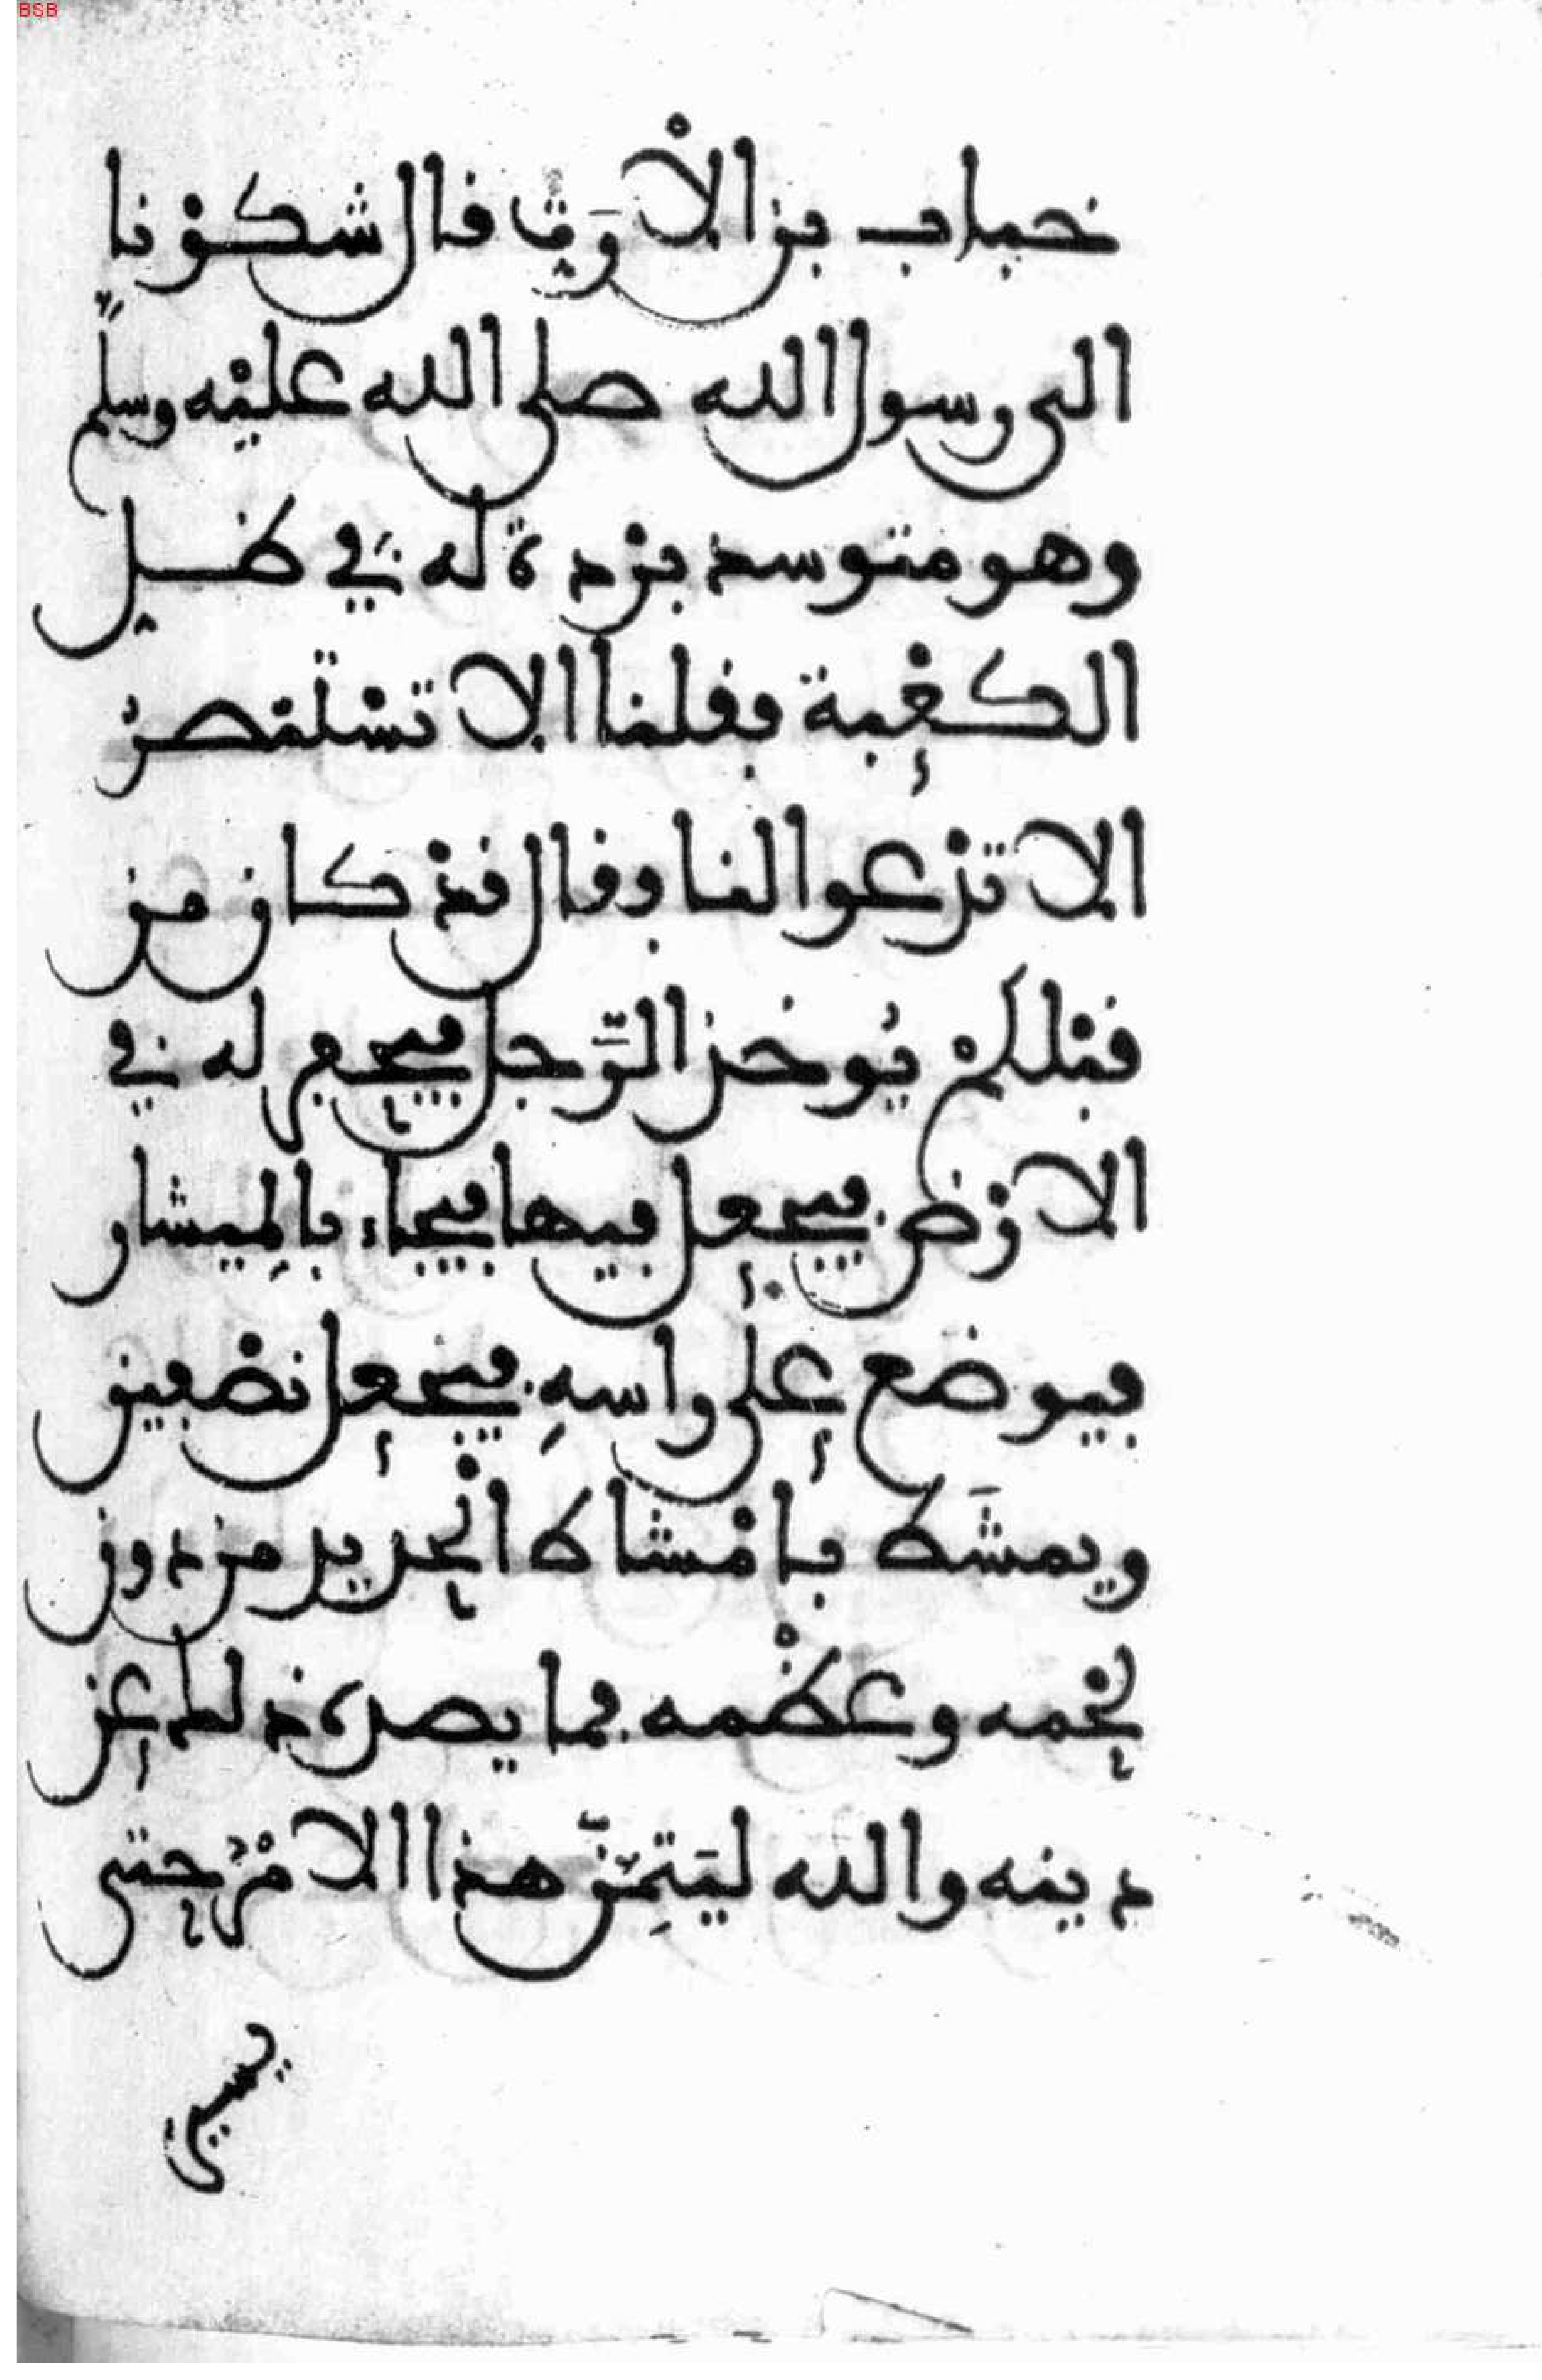 BSB
خباب بن الارت قال شكونا
الى رسول الله صلى الله عليه وسلم
وهو متوسد بردة له في ظل
الكعبة فقلنا الا تستنصر
الا تدعوا لنا فقال قد كان من
قبلكم يوخذ الرجل فيحفر له في
الارض فيجعل فيها فيجاء بالميشار
فيوضع على راسه فيجعل نصفين
ويمشط بامشاط الحديد من دون
لحمه وعظمه فما يصده ذلك عن
دينه والله ليتمن هذا الامر حتى
يسير